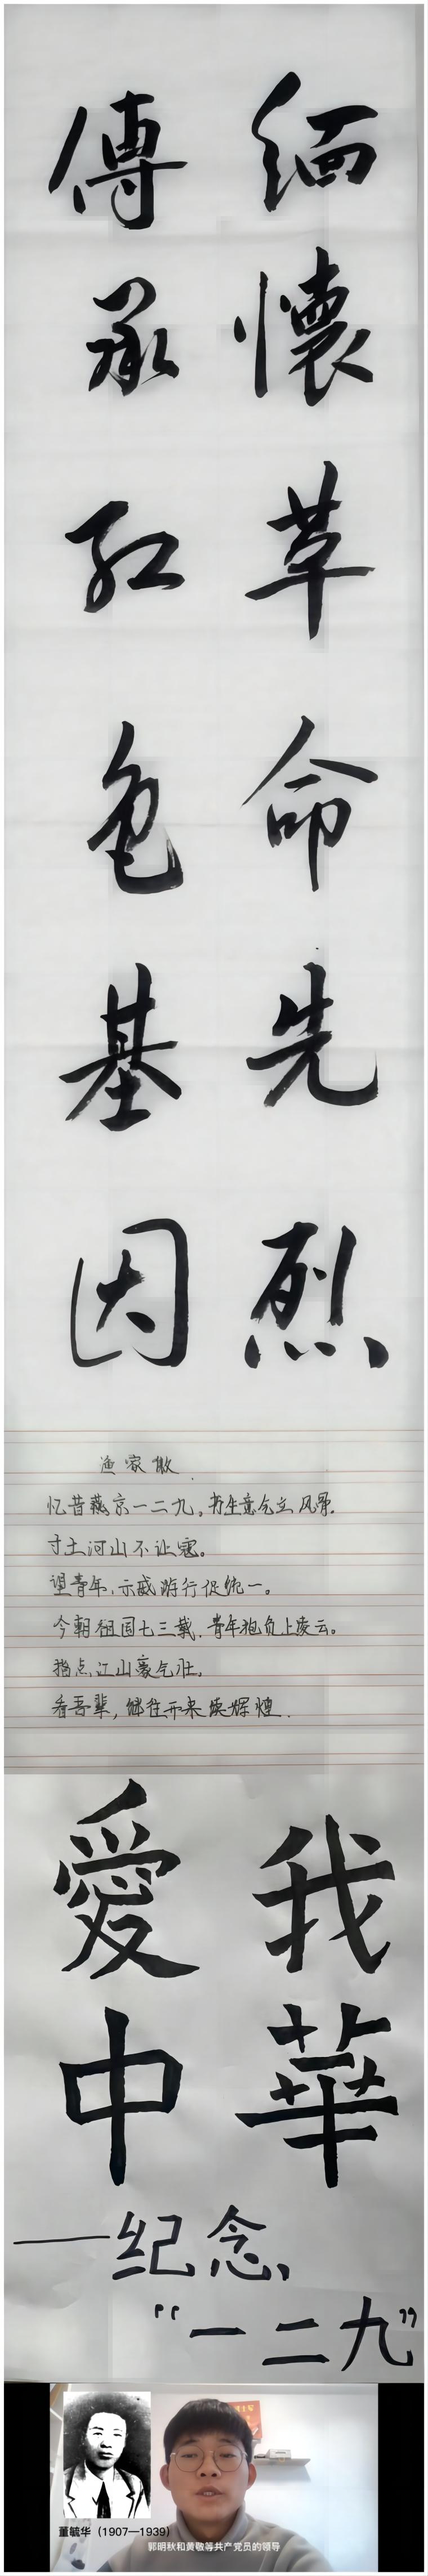 缅懷革命先烈
傳承红色基因
渔家傲
忆昔燕京一二九。书生意气立风骨.
寸土河山不让寇。
望青年,示威游行促统一。
今朝祖国七三载.青年抱负上凌云。
指点江山豪气壮,
看吾辈,继往开来续辉煌.
我愛
中華
——纪念
“一二九”
董毓华（1907—1939）
郭明秋和黄敬等共产党员的领导